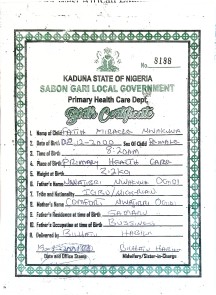 No. 8188
KADUNA STATE OF NIGERIA
SABON GARI LOCAL GOVERNMENT
Primary Health Care Dept,
Birth Certificate
1. Name of Child FAITH MIRACLE NWAKUNA
2. Date of Birth 02-12-2000 Sex Of Child FEMALE
3. Time of Birth 8:20am
4. Place of Birth PRIMARY HEALTH CARE
5. Weight at Birth 3.2kg
6. Father's Name OGIDI
7. Tribe and Nationality IGBO/NIGERIAN
8. Mother's Name COMFORT OGIDI
9. Father's Residence at time of Birth SAMARU
Father's Occupation at time of Birth BUSINESS
Delivered by HABILA
Date and Office Stamp
Midwifery/Sister-in-Charge